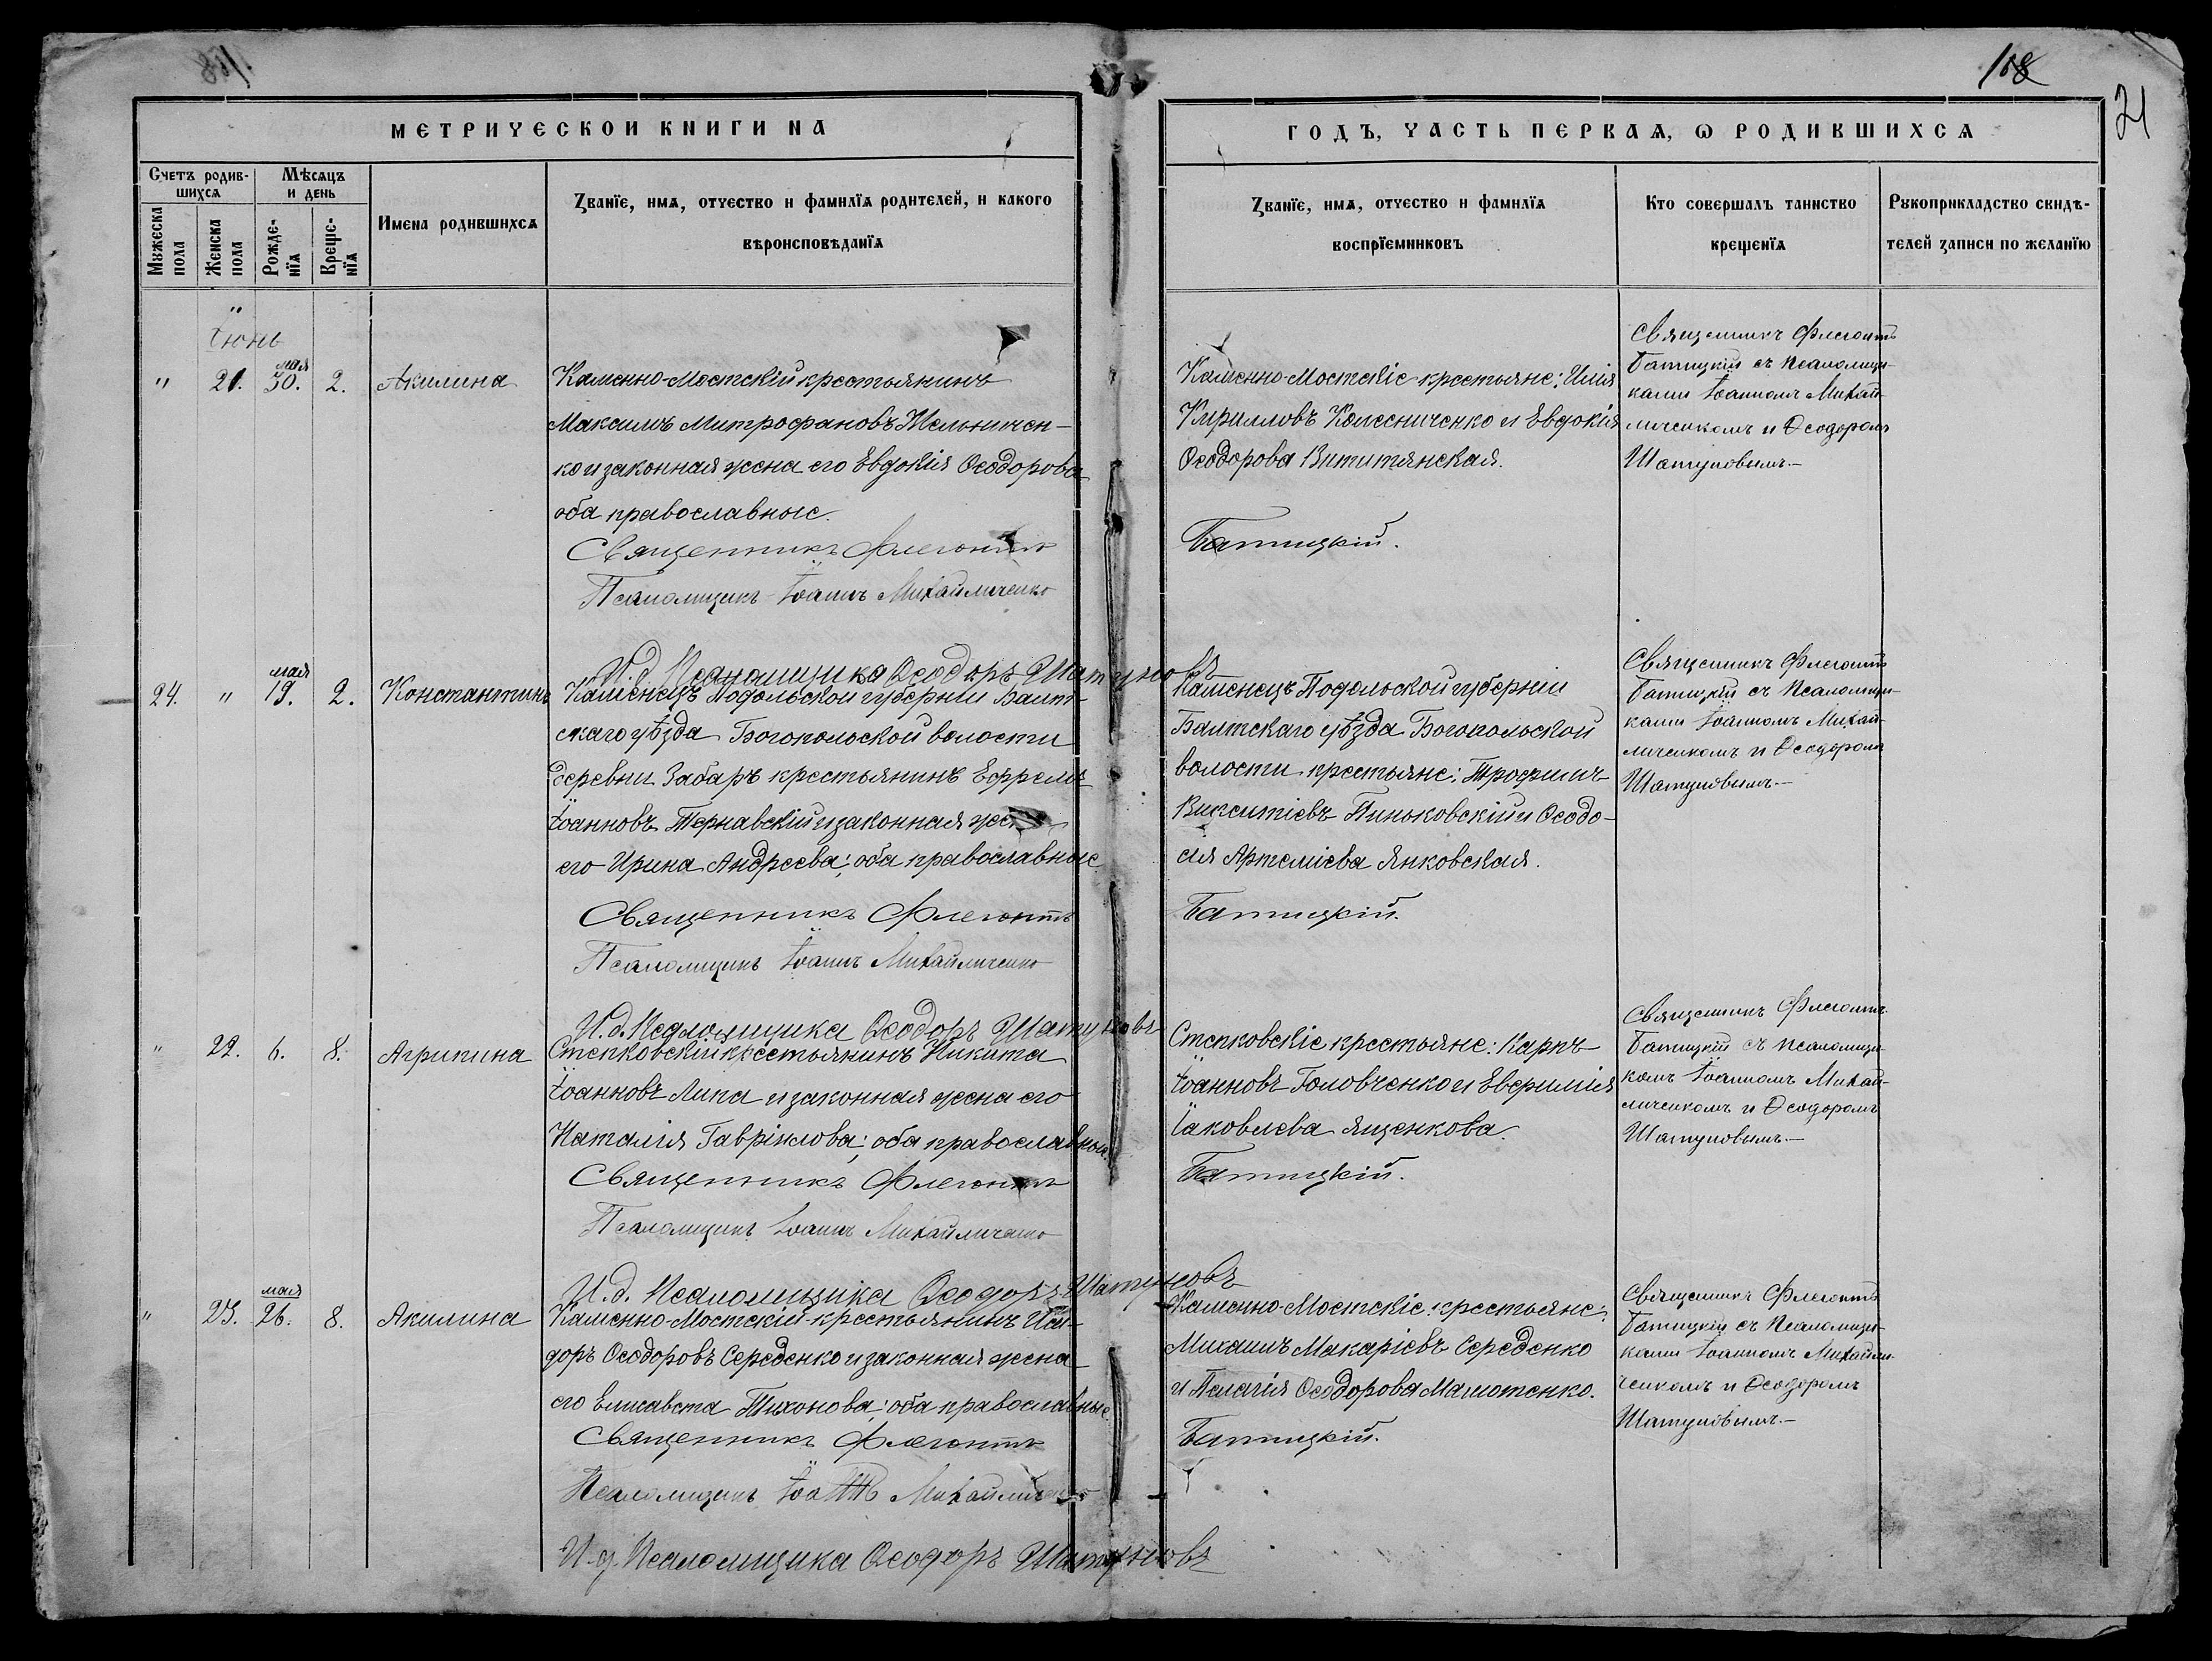 168
21
МЕТРИЧЕСКОЙ КНИГИ НА
ГОДЪ, ЧАСТЬ ПЕРВАѦ, Ѡ РОДИВШИХСѦ
Счетъ родив-
шихсѧ
Мѣсѧцъ
и день
Мꙋжеска
пола
Женска
пола
Рожде-
нїѧ
Креще-
нїѧ
Имена родившихсѧ
Званїе, имѧ, отчество и фамилїѧ родителей, и какого
вѣроисповѣданїѧ
Званїе, имѧ, отчество и фамилїѧ
воспрїемниковъ
Кто совершалъ таинство
крещенїѧ
Рꙋкоприкладство свидѣ-
телей записи по желанїю
Іюнь
" 21. мая 30. 2. Акилина
Каменно-Мостскій крестьянинъ
Максимъ Митрофановъ Мельничен-
ко и законная жена его Евдокія Ѳеодорова
оба православные.
Священникъ Флегонтъ
Псаломщикъ Іоаннъ Михайличенко
И.д. Псаломщика Ѳеодоръ Шатуновъ
Каменно-Мостскіе крестьяне: Илія
Кирилловъ Колесниченко и Евдокія
Ѳеодорова Вититянская.
Батицкій.
Священникъ Флегонтъ
Батицкій съ псаломщи-
ками Іоанномъ Михай-
личенкомъ и Ѳеодоромъ
Шатуновымъ.—
24. " мая 19. 2. Константинъ
Каменецъ Подольской губерніи Балт-
скаго уѣзда Богопольской волости
деревни Забаръ крестьянинъ Ефремъ
Іоанновъ Тернавскій и законная жена
его Ирина Андреева; оба православные
Священникъ Флегонтъ
Псаломщикъ Іоаннъ Михайличенко
И.д. Псаломщика Ѳеодоръ Шатуновъ
Каменецъ Подольской губерніи
Балтскаго уѣзда Богопольской
волости крестьяне: Трофимъ
Викентіевъ Пиньковскій и Ѳеодо-
сія Артеміева Янковская.
Батицкій.
Священникъ Флегонтъ
Батицкій съ псаломщи-
ками Іоанномъ Михай-
личенкомъ и Ѳеодоромъ
Шатуновымъ.—
" 22. 6. 8. Агрипина
Степковскій крестьянинъ Никита
Іоанновъ Липа и законная жена его
Наталія Гавріилова; оба православные.
Священникъ Флегонтъ
Псаломщикъ Іоаннъ Михайличенко
И.д. Псаломщика Ѳеодоръ Шатуновъ
Степковскіе крестьяне: Карпъ
Іоанновъ Головченко и Евфимія
Іаковлева Ященкова.
Батицкій.
Священникъ Флегонтъ
Батицкій съ псаломщи-
комъ Іоанномъ Михай-
личенкомъ и Ѳеодоромъ
Шатуновымъ.—
" 23. мая 26. 8. Акилина
Каменно-Мостскій крестьянинъ Иси-
доръ Ѳеодоровъ Середенко и законная жена
его Елисавета Тихонова; оба православные.
Священникъ Флегонтъ
Псаломщикъ Іоаннъ Михайличенко
И.д. Псаломщика Ѳеодоръ Шатуновъ
Каменно-Мостскіе крестьяне:
Михаилъ Макаріевъ Середенко
и Пелагія Ѳеодорова Малютенко.
Батицкій.
Священникъ Флегонтъ
Батицкій съ псаломщи-
ками Іоанномъ Михайли-
ченкомъ и Ѳеодоромъ
Шатуновымъ.—